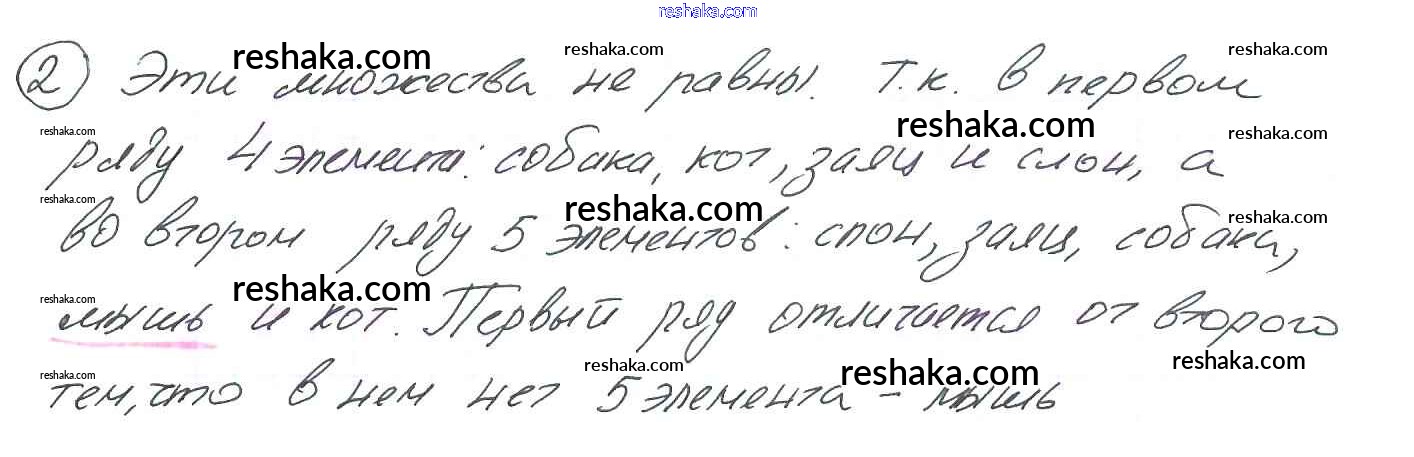 reshaka.com
② Эти множества не равны. Т.к. в первом
reshaka.com reshaka.com reshaka.com
ряду 4 элемента: собака, кот, заяц и слон, а
reshaka.com reshaka.com reshaka.com
во втором ряду 5 элементов: слон, заяц, собака,
reshaka.com reshaka.com reshaka.com
мышь и кот. Первый ряд отличается от второго
reshaka.com reshaka.com
тем, что в нем нет 5 элемента - мышь
reshaka.com reshaka.com reshaka.com reshaka.com